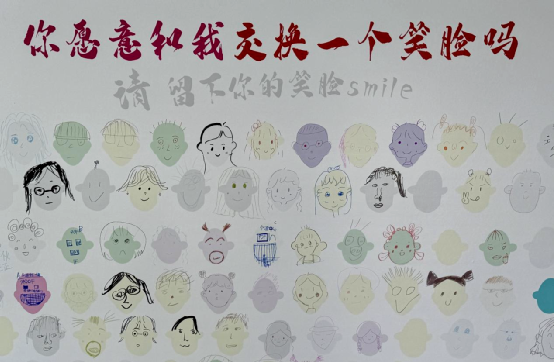 你愿意和我交换一个笑脸吗
请 留下你的笑脸smile